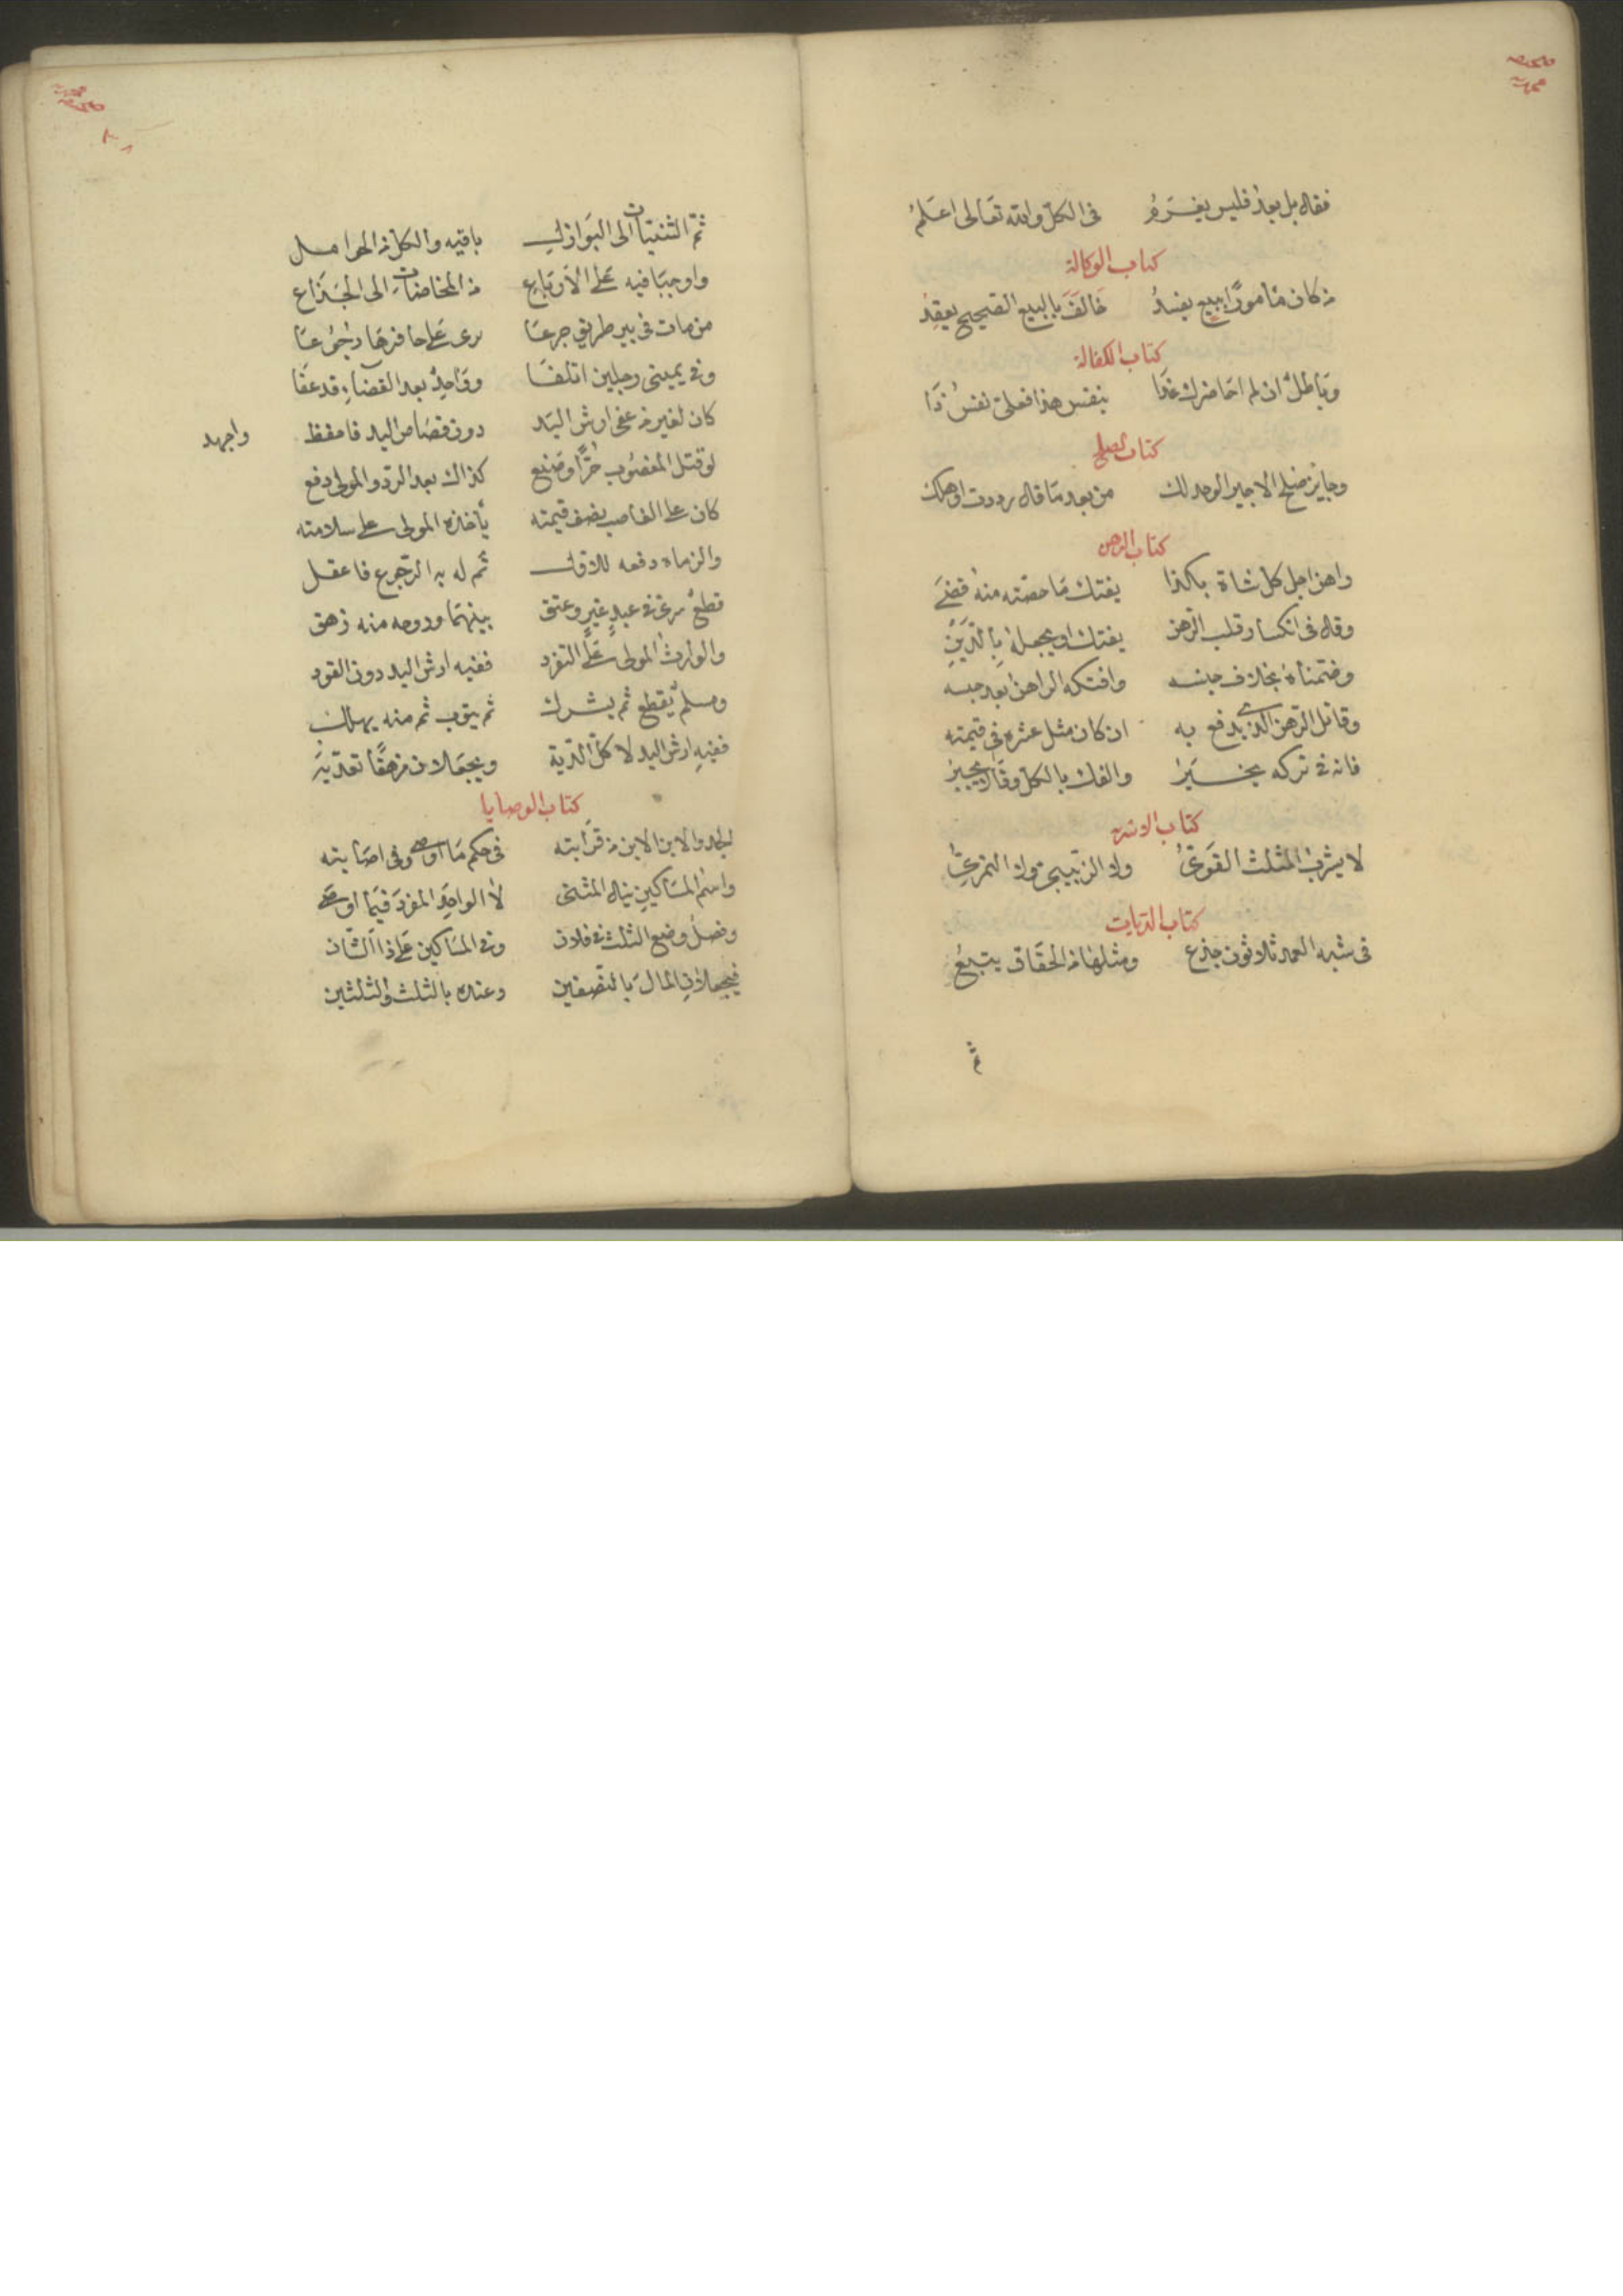 فقال بل بعد فليس يغرم في الكل والله تعالى اعلم
كتاب الوكالة
من كان مامورا ببيع يفسد خالف بالبيع الصحيح يعقد
كتاب الكفالة
وباطل ان لم احاضرك غدا بنفس هذا فعلي نفس ذا
كتاب الصلح
وجايز صلح الاجير الوحد لك من بعد ما قال رددت او هلك
كتاب الرهن
راهن اجل كل شاة بكذا يفتك ما حصته منه قضى
وقال في انكسار قلب الرهن يفتك او يجعله بالدين
وضمناه بخلاف جنسه وافتكه الراهن بعد حبسه
وقاتل الرهن الذي يدفع به ان كان مثل عشره في قيمته
فانه في تركه يخير والفك بالكل وقالا يجبر
كتاب الاشربة
لا يشرب المثلث القوي ولا الزبيبي ولا التمري
كتاب الديات
في شبه العمد ثلاثون جذع ومثلها من الحقاق يتبع
ثم
ثم الثنيات الى البوازل باقيه والكل من الحوامل
واوجبا فيه على الارباع من المخاضات الى الجذاع
من مات في بير طريق جوعا يرى على حافرها رجوعا
وفي يميني رجلين اتلفا وواحد بعد القضاء قد عفا
كان لغير من عفى ارش اليد دون قصاص اليد فاحفظ واجهد
لو قتل المغصوب حرا وصنع كذاك بعد الرد والمولى دفع
كان على الغاصب نصف قيمته يأخذه المولى على سلامته
والزماه دفعه للاول ثم له به الرجوع فاعقل
قطع سرى في عبد غير وعتق بينهما وروحه منه زهق
والوارث المولى على التفرد ففيه ارش اليد دون القود
ومسلم يقطع ثم يشرك ثم يتوب ثم منه يهلك
ففيه ارش اليد لا كل الدية ويجعلان مزهقا تعديه
كتاب الوصايا
الجد والابن الابن من قرابته في حكم ما اوصى وفي اصابته
واسم المساكين ينال المثنى لا الواحد المفرد فيما اوصى
وفضل وضع الثلث في فلان وفي المساكين على ذا الشان
فيجعلان المال بالنصفين وعنده بالثلث والثلثين